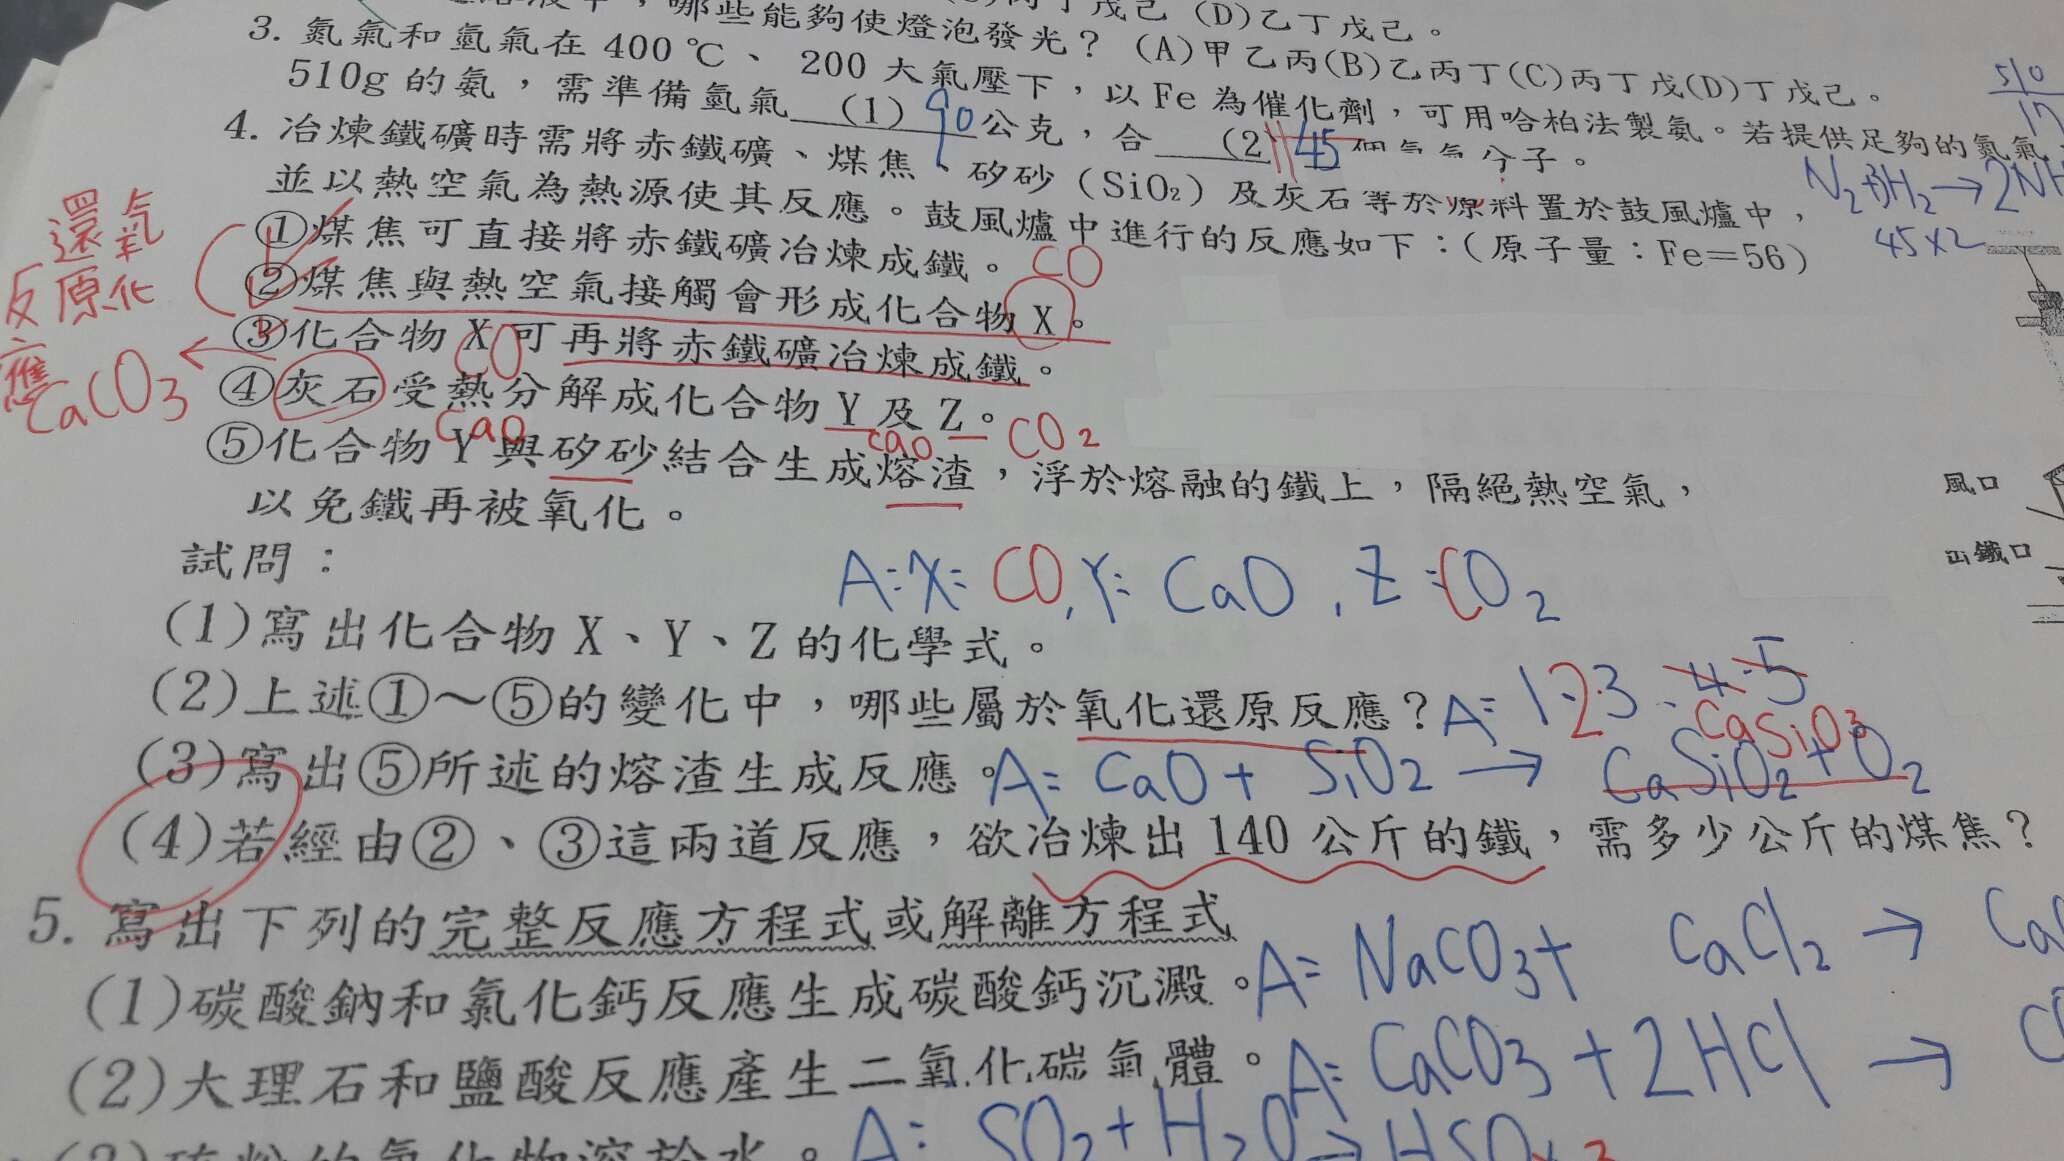 哪些能夠使燈泡發光？(A)甲乙丙(B)乙丙丁(C)丙丁戊(D)丁戊己。
丁戊己 (D)乙丁戊己。
3. 氮氣和氫氣在 400℃、 200 大氣壓下，以 Fe 為催化劑，可用哈柏法製氨。若提供足夠的氮氣，
510g 的氨，需準備氫氣 (1) 90 公克，合 (2) 45 分子。
510
17
N2+3H2→2NH
45×2
4. 冶煉鐵礦時需將赤鐵礦、煤焦、矽砂（SiO₂）及灰石等於原料置於鼓風爐中，
並以熱空氣為熱源使其反應。鼓風爐中進行的反應如下：(原子量：Fe=56)
還氧
原化
反
應
①煤焦可直接將赤鐵礦冶煉成鐵。
CO
②煤焦與熱空氣接觸會形成化合物 X。
③化合物 X 可再將赤鐵礦冶煉成鐵。
CO
CaCO3
④灰石受熱分解成化合物 Y 及 Z。
CaO
CaO
CO2
⑤化合物 Y 與矽砂結合生成熔渣，浮於熔融的鐵上，隔絕熱空氣，
以免鐵再被氧化。
風口
出鐵口
試問：
A: X= CO, Y= CaO , Z =CO2
(1)寫出化合物 X、Y、Z 的化學式。
(2)上述①～⑤的變化中，哪些屬於氧化還原反應？A= 1.2.3 . 4.5
CaSiO3
(3)寫出⑤所述的熔渣生成反應。A= CaO + SiO2 → CaSiO2+O2
(4)若經由②、③這兩道反應，欲冶煉出 140 公斤的鐵，需多少公斤的煤焦？
5. 寫出下列的完整反應方程式或解離方程式
(1)碳酸鈉和氯化鈣反應生成碳酸鈣沉澱。A= NaCO3+ CaCl2 → Ca
(2)大理石和鹽酸反應產生二氧化碳氣體。A= CaCO3 + 2HCl → C
A= SO2+H2O→